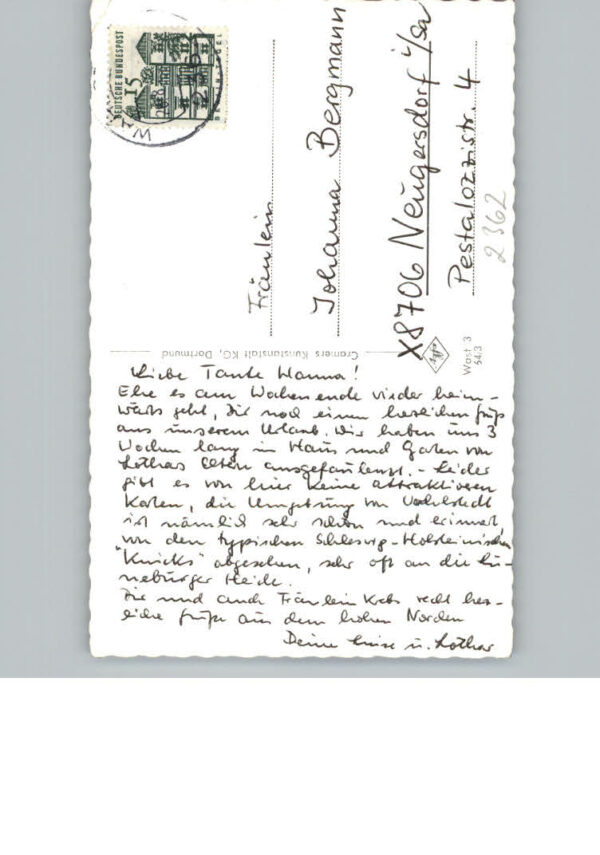 Liebe Tante Hanna!
Ehe es am Wochenende wieder heim-
wärts geht, Dir noch einen herzlichen Gruß
aus unserem Urlaub. Wir haben uns 3
Wochen lang in Haus und Garten von
Lothars Eltern ausgefaulenzt. - Leider
gibt es von hier keine attraktiveren
Karten, die Umgebung von
ist nämlich sehr schön und erinnert,
von den typischen Schleswig-Holsteinischen
"Knicks" abgesehen, sehr oft an die Lü-
neburger Heide.
Dir und auch Fräulein Krebs recht herz-
liche Grüße aus dem hohen Norden
Deine u. Lothar
Fräulein
Johanna Bergmann
X8706 Neugersdorf i/Sa
Pestalozzistr. 4
2362
Cramers Kunstanstalt KG, Dortmund
Wast 3
54/3
DEUTSCHE BUNDESPOST
15
BERLIN-TEGEL